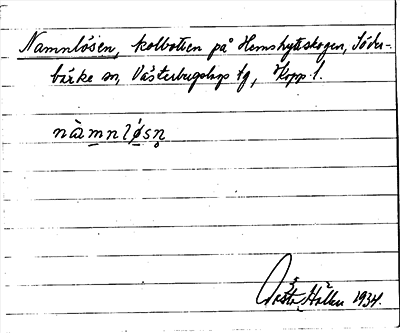 Namnlösen, kolbotten på Hemshyttskogen, Söder-
bärke sn, Västerbergslags tg, Kopp. l.
nàmnlǿsn̥
Gösta Hållen 1934.